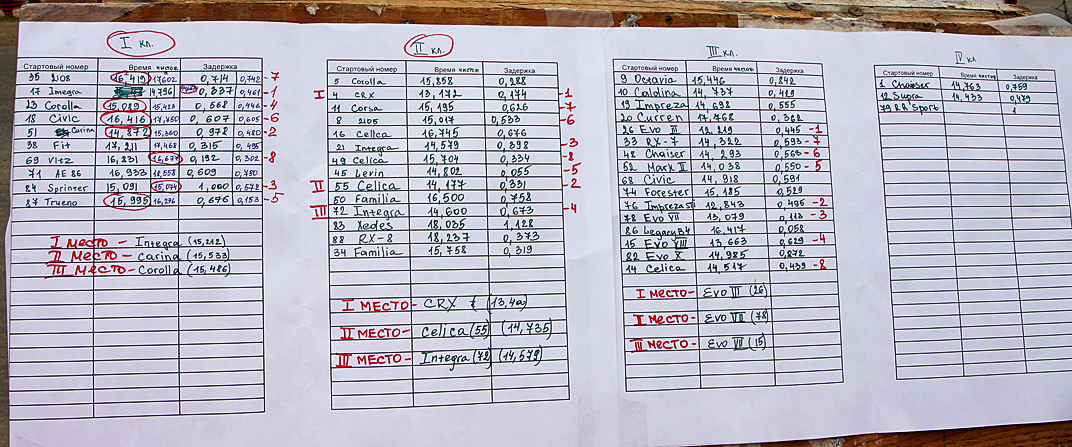 I кл.
Стартовый номер Время чистов Задержка
35 2108 16,419 17,602 0,714 0,742 -7
17 Integra 14,796 0,337 0,461 -1
23 Corolla 15,089 15,423 0,568 0,446 -4
18 Civic 16,416 17,750 0,607 0,605 -6
51 Carina 14,872 15,360 0,978 0,480 -2
38 Fit 17,211 17,468 0,315 0,495
69 Vitz 16,831 16,674 0,192 0,302 -8
71 AE 86 16,933 18,558 0,609 0,750
84 Sprinter 15,091 15,074 1,000 0,572 -3
87 Trueno 15,995 16,296 0,676 0,153 -5
I МЕСТО - Integra (15,212)
II МЕСТО - Carina (15,533)
III МЕСТО - Corolla (15,486)
II кл.
Стартовый номер Время чистов Задержка
5 Corolla 15,858 0,288
I 4 CRX 13,172 0,174 -1
11 Corsa 15,195 0,626 -7
8 2105 15,017 0,533 -6
16 Celica 16,745 0,676
21 Integra 14,579 0,398 -3
49 Celica 15,704 0,334 -8
45 Levin 14,802 0,055 -5
II 55 Celica 14,177 0,331 -2
50 Familia 16,500 0,758
III 72 Integra 14,600 0,673 -4
83 Xedes 18,035 1,128
88 RX-8 18,237 0,373
34 Familia 15,758 0,319
I МЕСТО - CRX (13,42)
II МЕСТО - Celica (55) (14,735)
III МЕСТО - Integra (72) (14,579)
III кл.
Стартовый номер Время чистов Задержка
9 Octavia 15,446 0,842
10 Caldina 14,737 0,429
19 Impreza 14,698 0,555
20 Curren 17,768 0,362
26 Evo III 12,219 0,445 -1
33 RX-7 14,322 0,593 -7
48 Chaiser 14,293 0,563 -6
52 Mark II 14,038 0,550 -5
68 Civic 14,918 0,591
74 Forester 15,185 0,529
76 Impreza STI 12,843 0,485 -2
78 Evo VII 13,079 0,113 -3
86 Legacy B4 16,417 0,058
15 Evo VIII 13,663 0,629 -4
82 Evo X 14,985 0,872
14 Celica 14,517 0,439 -8
I МЕСТО - Evo III (26)
II МЕСТО - Evo VII (78)
III МЕСТО - Evo VIII (15)
IV кл.
Стартовый номер Время чистов Задержка
1 Chaiser 14,763 0,759
12 Supra 14,433 0,479
79 RR Sport